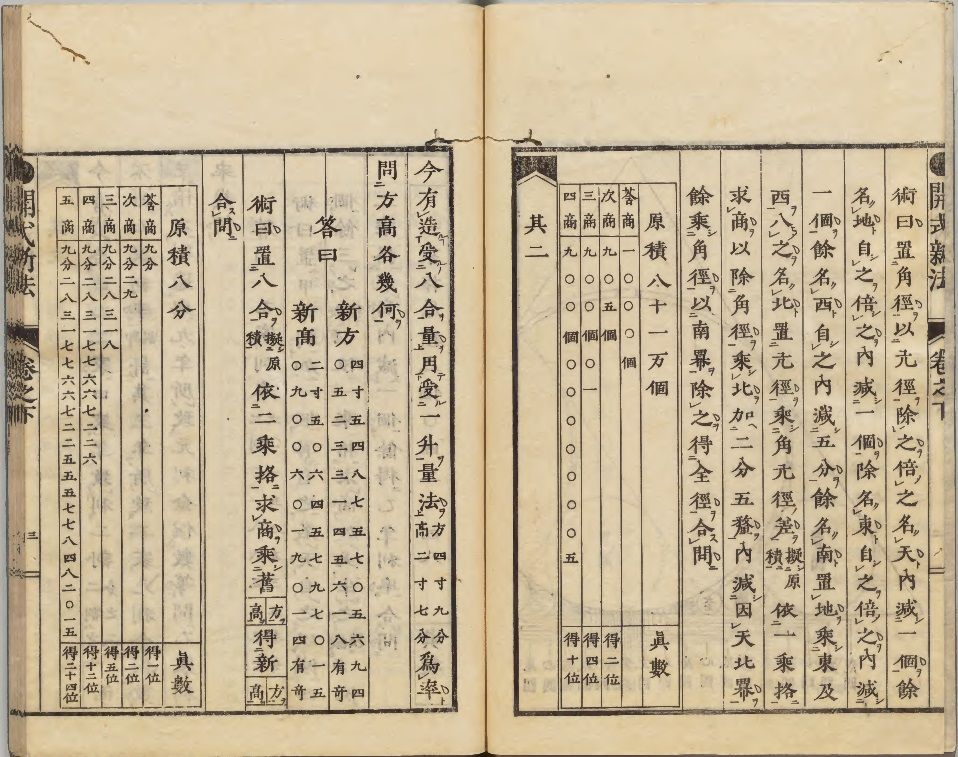 開式新法 卷之下
術曰置角徑以亢徑除之倍之名天內減一個餘
名地自之倍之內減一個除名東自之倍之內減
一個餘名西自之內減五分餘名南置地乘東及
西八之名北置亢徑乘角亢徑差擬原積依一乘挌
求商以除角徑乘北加二分五釐內減因天北冪
餘乘角徑以南冪除之得全徑合問
原積八十一万個 眞數
荅商 一〇〇〇個
次商 九〇五個 得二位
三商 九〇〇個〇一 得四位
四商 九〇〇個〇〇〇〇〇〇〇五 得十位
其二
今有造受八合量用受一升量法方四寸九分高二寸七分爲率
問方高各幾何
荅曰
新方 四寸五四八七五七〇五六九四
〇五二三三一四五六一八有奇
新高 二寸五〇六四五七九七〇一五
〇九〇〇六〇一九〇〇一四有奇
術曰置八合擬原積依二乘挌求商乘舊方高得新方高
合問
原積八分 眞數
荅商 九分 得一位
次商 九分二九 得二位
三商 九分二八三一八 得五位
四商 九分二八三一七七六六七二二六 得十二位
五商 九分二八三一七七六六七二二五五五七七八四八二〇一五 得二十四位
開式新法 卷之下 三